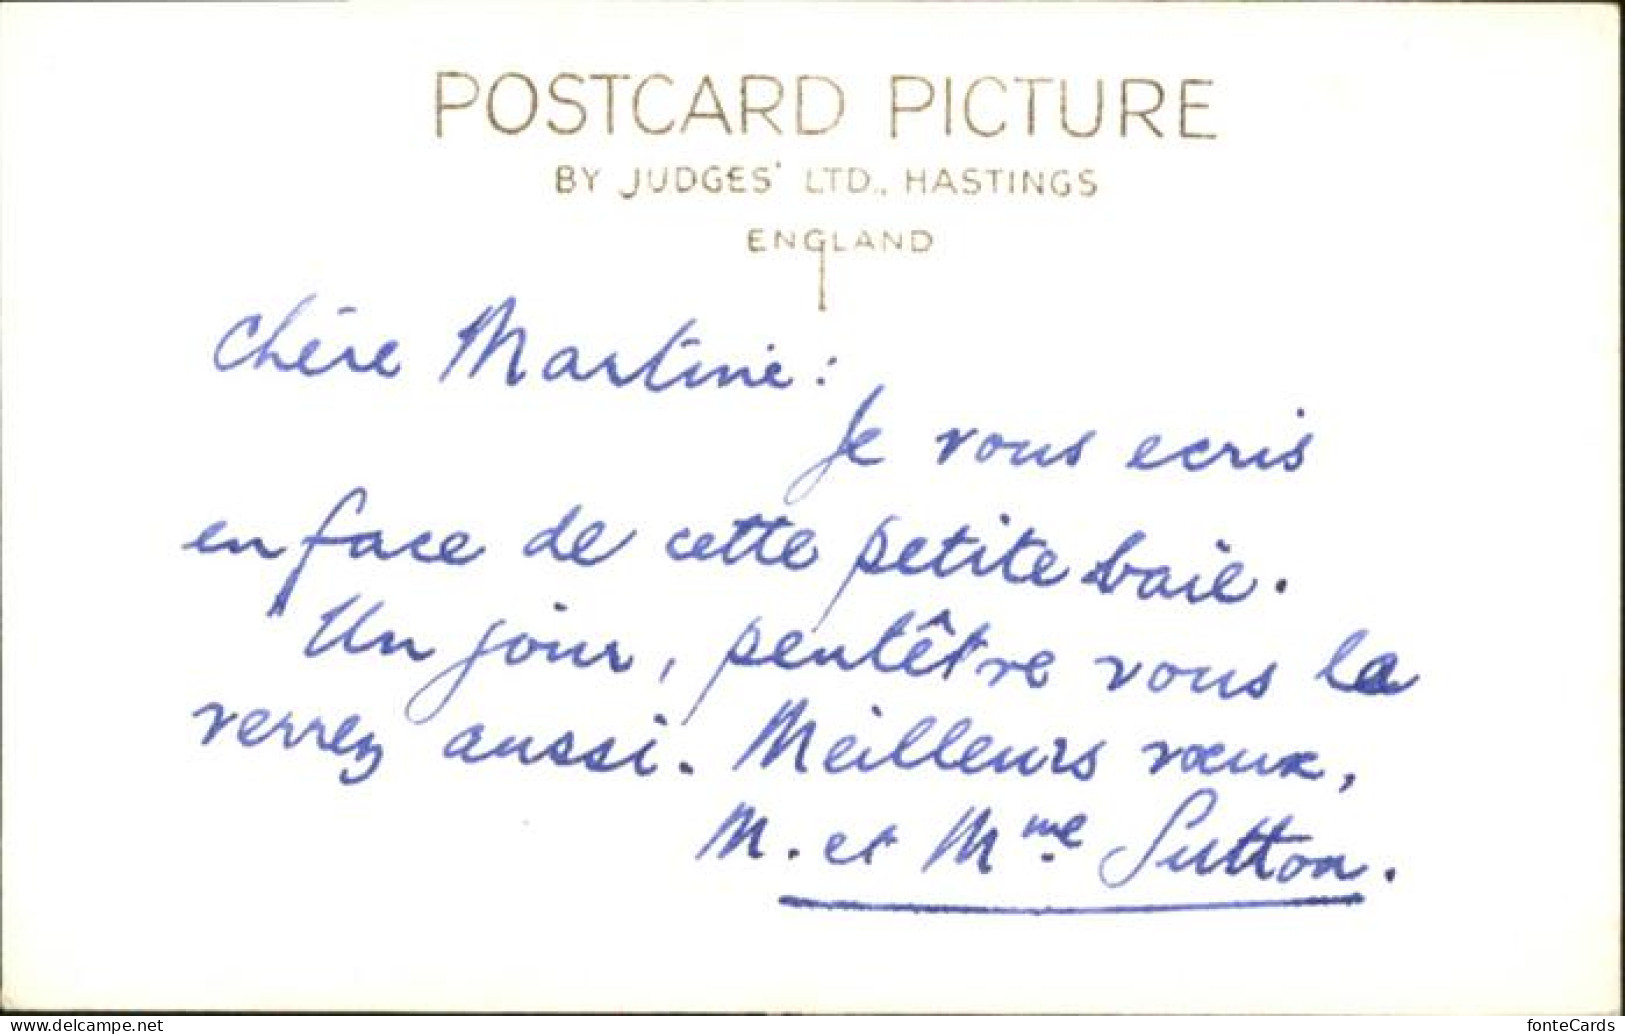 POSTCARD PICTURE
BY JUDGES' LTD., HASTINGS
ENGLAND
Chère Martine:
Je vous ecris
en face de cette petite baie.
Un jour, peutêtre vous la
verrez aussi. Meilleurs vœux,
M. et Mme Sutton.
www.delcampe.net
fonteCards